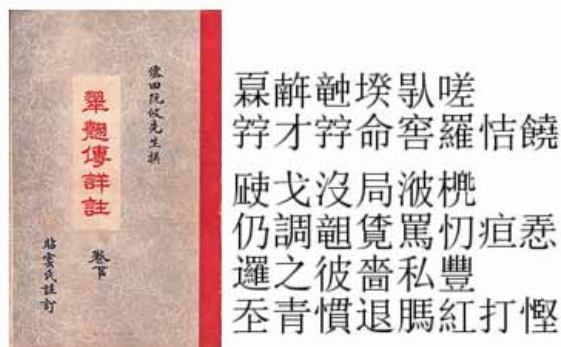 僊田阮攸先生撰
翠翹傳詳註
卷下
貼雲氏註訂
𤾓𢆥𥪞𡎝𠊛嗟
𡨸才𡨸命窖羅恄饒
戈沒局
仍調𧡊罵忉疸𢚸
邏之彼嗇私豐
𡗶青慣退𦟐紅打慳